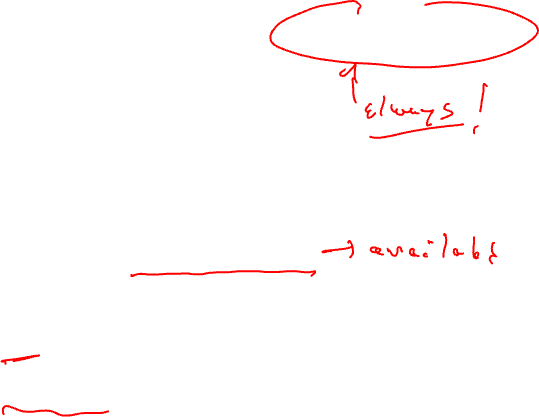 always!
→ available